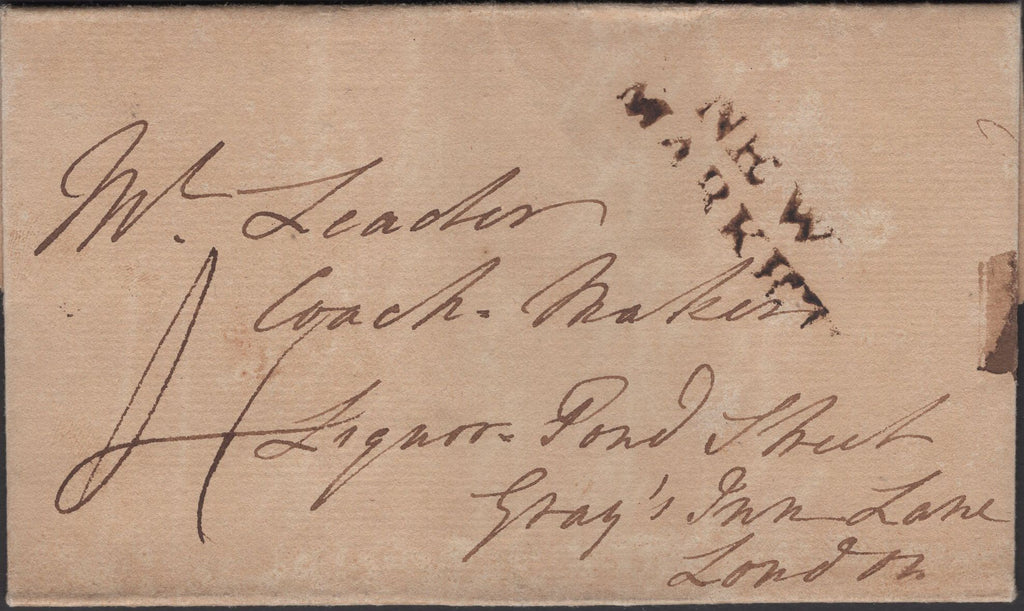 NEW
MARKET
Mr. Leader
Coach-Maker
4
Liquor-Pond Street
Gray's Inn Lane
London